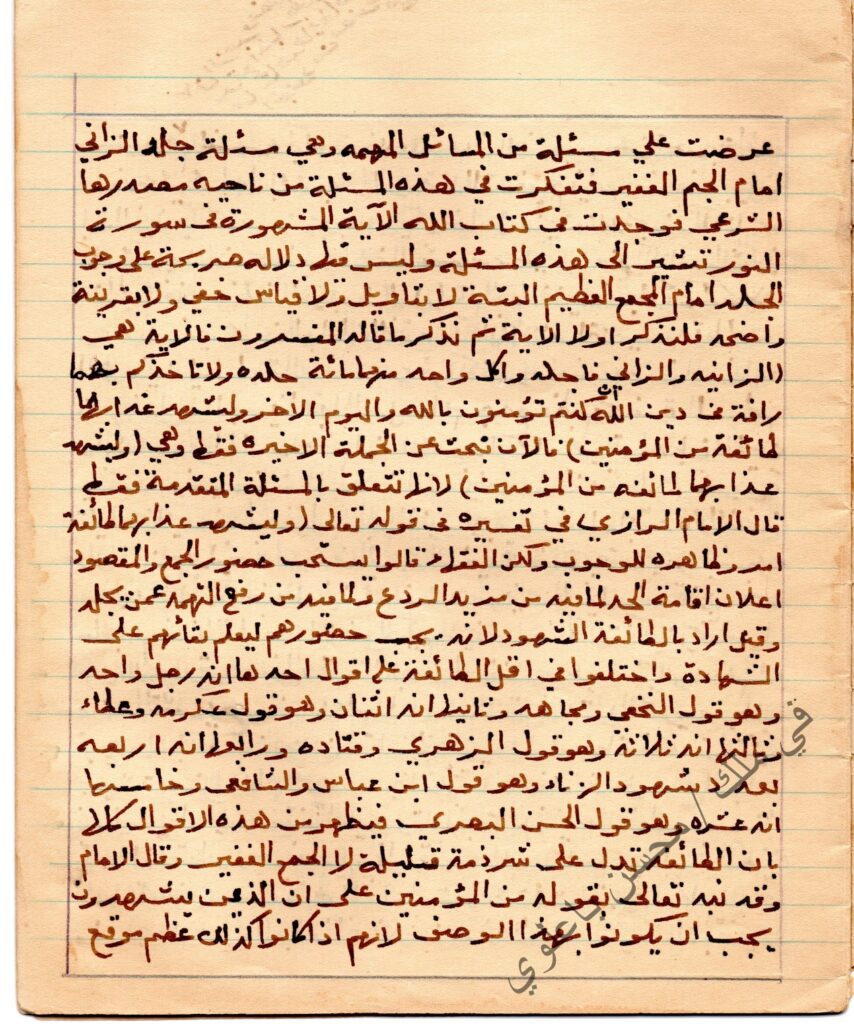 عرضت علي مسئلة من المسائل المهمه وهي مسئلة جلد الزاني
امام الجم الغفير فتفكرت في هذه المسئلة من ناحيه مصدرها
الشرعي فوجدت في كتاب الله الآية المشهورة في سورة
النور تشير الى هذه المسئلة وليس فيها دلاله صريحة على وجوب
الجلد امام الجمع العظيم البتة لا بتاويل ولا قياس خفي ولا بقرينة
واضحه فلنذكر اولا الاية ثم نذكر ما قاله المفسرون فالاية هي
(الزانيه والزاني فاجلدوا كل واحد منهما مائة جلده ولا تاخذكم بهما
رافة في دين الله ان كنتم تؤمنون بالله واليوم الآخر وليشهد عذابهما
طائفة من المؤمنين) فالآن نبحث عن الجملة الاخيره فقط وهي (وليشهد
عذابهما طائفه من المؤمنين) لانها تتعلق بالمسئلة المتقدمة فقط
قال الامام الرازي في تفسيره في قوله تعالى (وليشهد عذابهما طائفة
امر وظاهره للوجوب ولكن الفقهاء قالوا يستحب حضور الجمع والمقصود
اعلان اقامة الحد لما فيه من مزيد الردع ولما فيه من رفع التهمه عمن يجلد
وقيل اراد بالطائفة الشهود لانه يجب حضورهم ليعلم بقائهم على
الشهادة واختلفوا في اقل الطائفة على اقوال احدها انه رجل واحد
وهو قول النخعي ومجاهد وثانيها انه اثنان وهو قول عكرمه وعطاء
وثالثها انه ثلاثة وهو قول الزهري وقتاده ورابعها انه اربعه
بعدد شهود الزناء وهو قول ابن عباس والشافعي وخامسها
انه عشره وهو قول الحسن البصري فيظهر من هذه الاقوال كلها
بان الطائفة تدل على شرذمة قليلة لا الجمع الغفير وقال الامام
وقد نبه تعالى بقوله من المؤمنين على ان الذين يشهدون
يجب ان يكونوا بهذا الوصف لانهم اذا كانوا كذلك عظم موقع